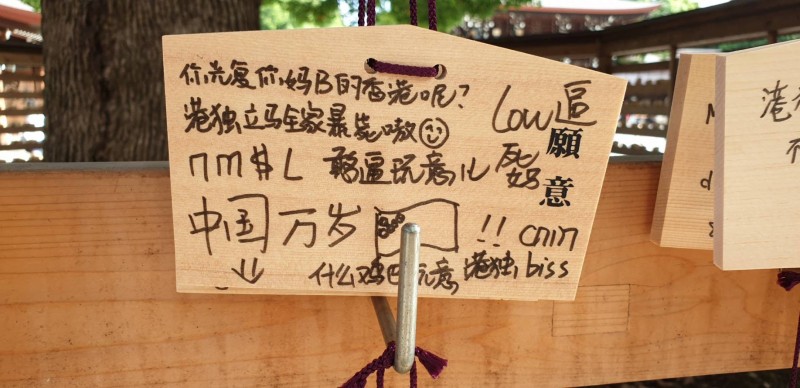 你光复你妈B的香港呢?
港独立马全家暴毙嗷
nm$L 憨逼玩意儿
Low逼
死妈
願意
中国万岁 !! cnm
什么鸡巴玩意 港独 biss
港独
不